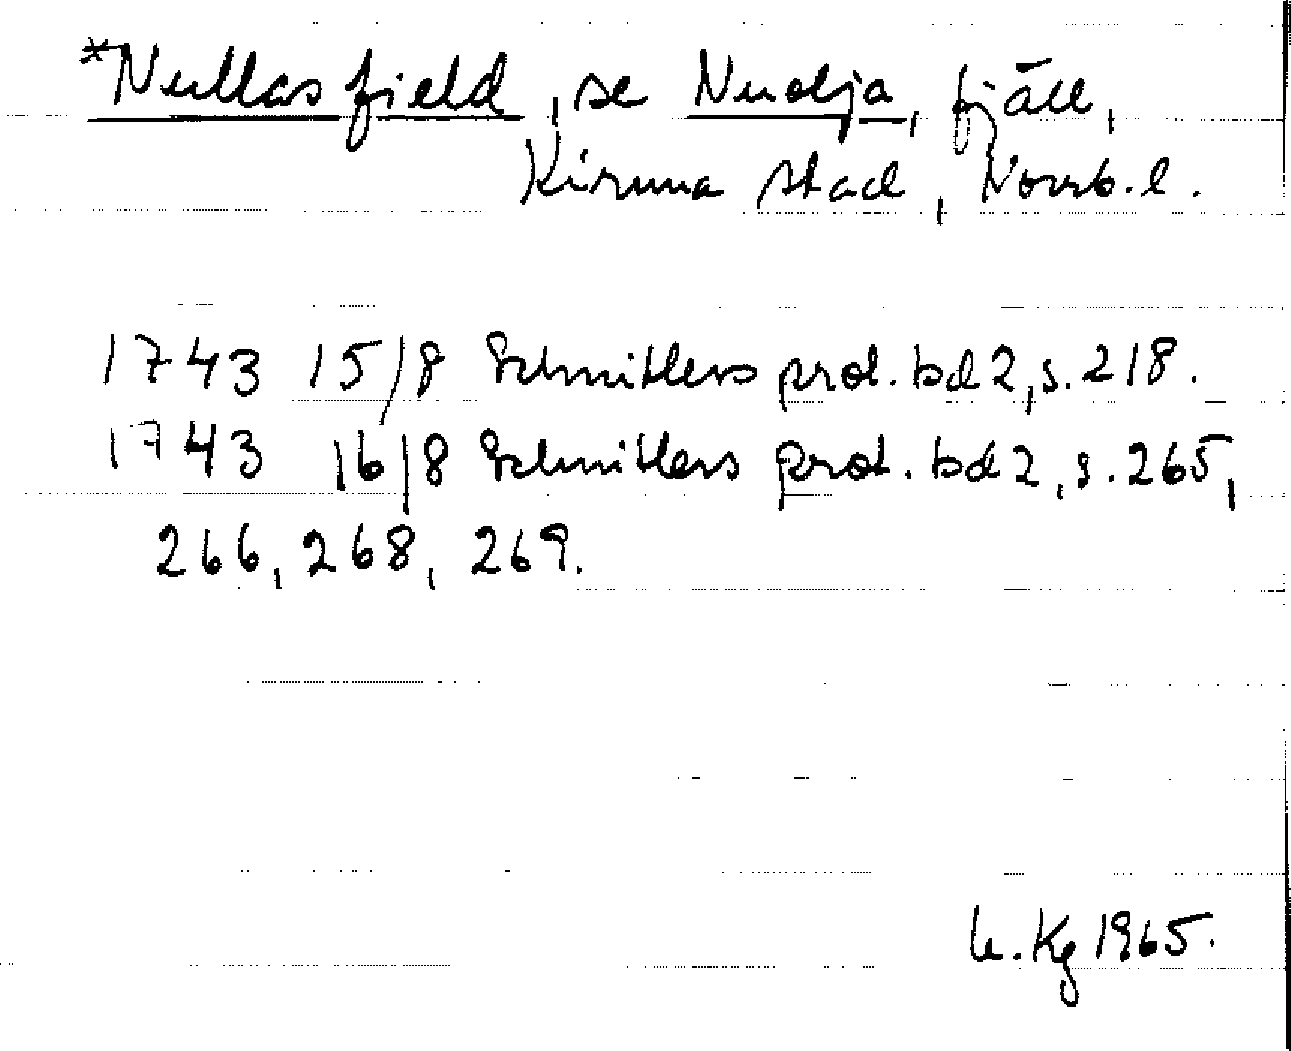 *Nullasfield, se Nuolja, fjäll,
Kiruna stad, Norrb.l.
1743 15/8 Schnitlers prot. bd 2, s. 218.
1743 16/8 Schnitlers prot. bd 2, s. 265,
266, 268, 269.
Kg 1965.